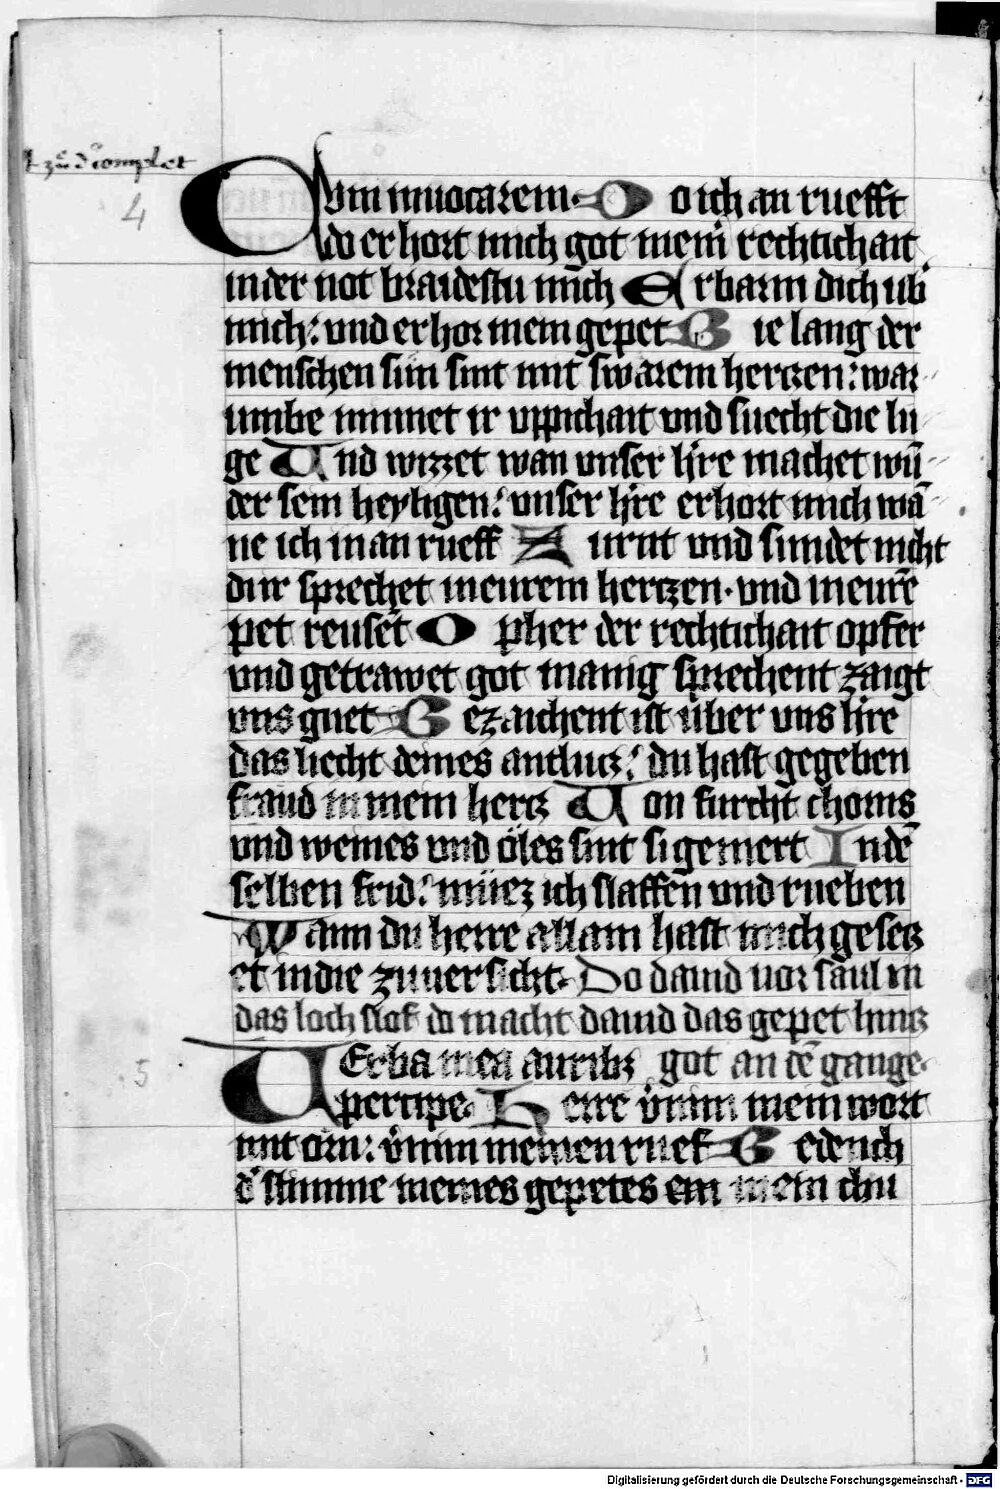 zu d' complet
4
Cum invocarem. Do ich an ruefft
do er hort mich got meinr rechtichait
in der not braidestu mich Erbarm dich ub'
mich: und erhor mein gepet Wie lang der
menschen sün sint mit swarem hertzen: war
umbe minnet ir uppichait und suecht die lu
ge Und wizzet wan unser h're machet wū
der sein heyligen: unser h're erhort mich wā
ne ich in an rueff Zurnt und sundet nicht
di ir sprechet in eurem hertzen. und in eurē
pet reuset Opher der rechtichait opfer
und getrawet got manig sprechent zaigt
uns guet Gezaichent ist über uns h're
das liecht deines antlutz: du hast gegeben
fraud in mein hertz Von furcht choms
und weines und öles sint si gemert In dē
selben frid: müez ich slaffen und rueben
Wann du herre allain hast mich gesetz
et in die zuversicht. Do david vor saul in
das loch slof do macht david das gepet hintz
5
Verba mea auribz got an dē gange.
percipe. Herre v'nim mein wort
mit orn: v'nim meinen ruef Gedench
d' stimme meines gepetes ein mein chu
Digitalisierung gefördert durch die Deutsche Forschungsgemeinschaft - DFG